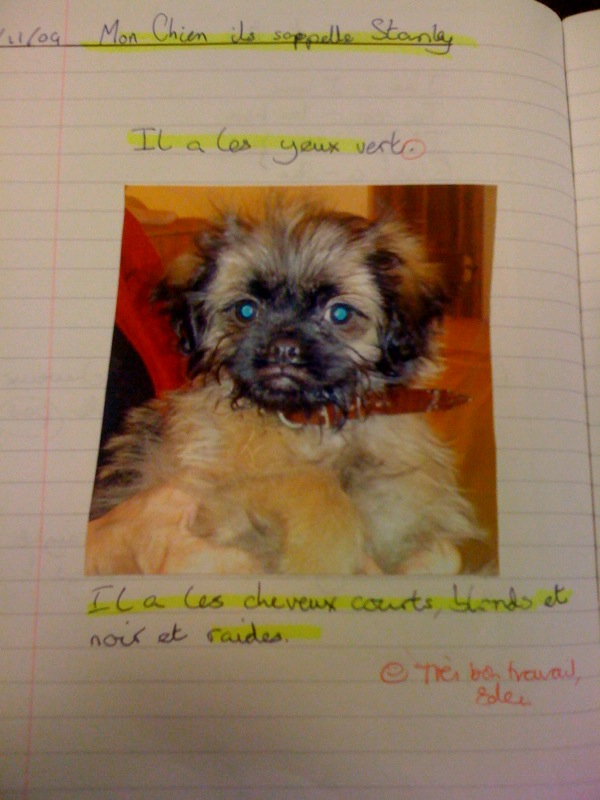 /11/09 Mon Chien ils sappelle Stanley
Il a les yeux vert.
Il a les cheveux courts, blonds et
noir et raides.
Très bon travail,